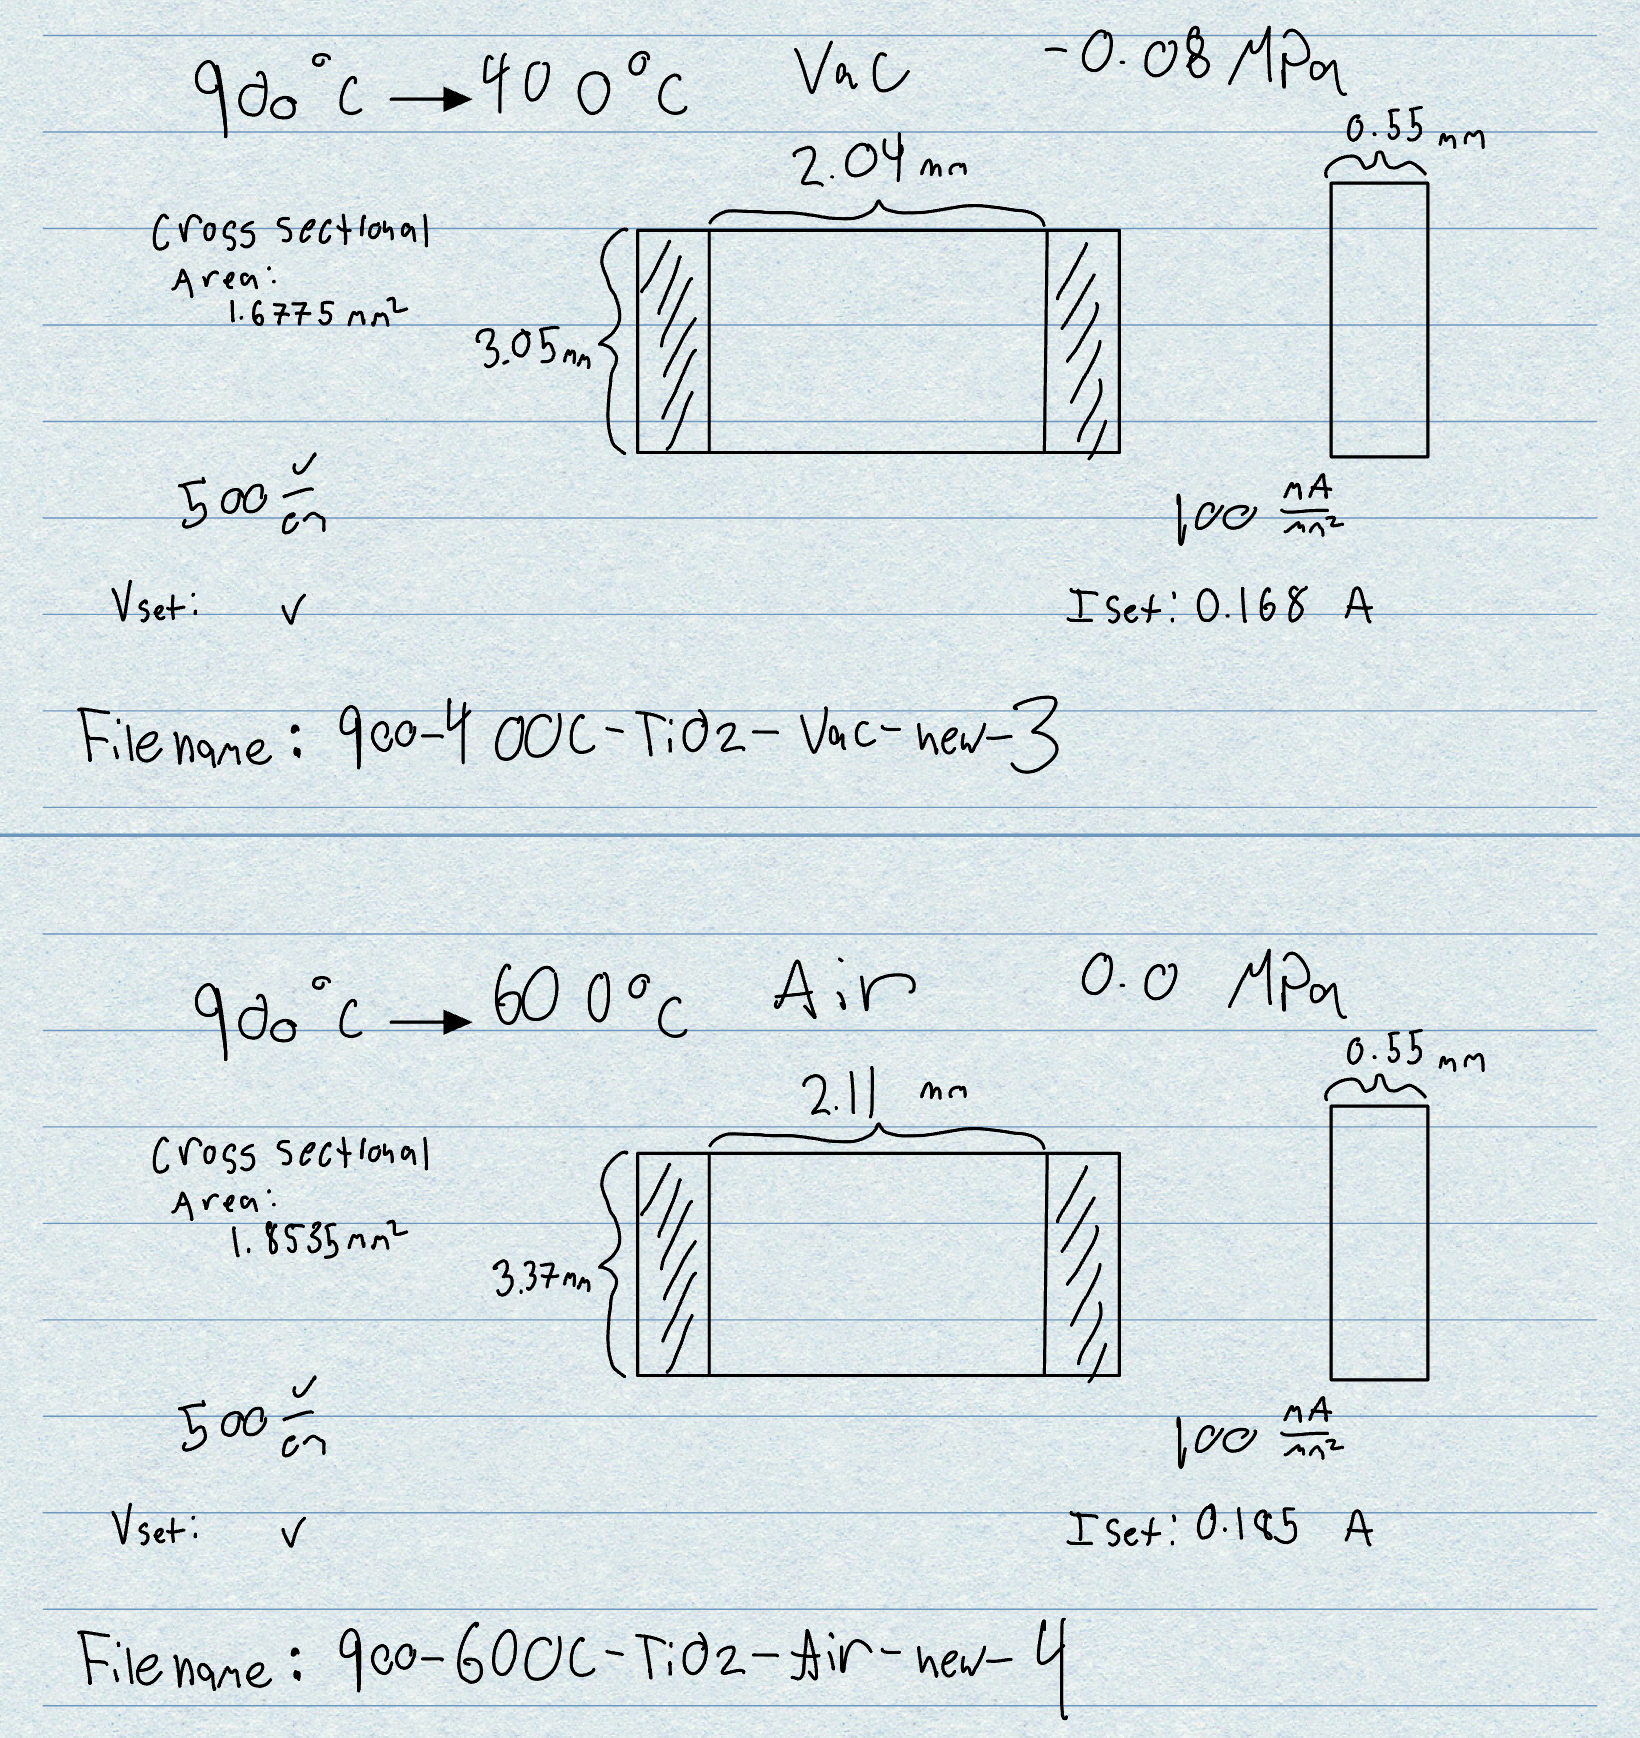 900°C → 400°C Vac -0.08 MPa
0.55 mm
2.04 mm
Cross sectional
Area:
1.6775 mm²
3.05mm
500 V/cm
100 mA/mm²
Vset: V
I set: 0.168 A
Filename: 900-400C-TiO2-Vac-new-3
900°C → 600°C Air 0.0 MPa
0.55 mm
2.11 mm
Cross sectional
Area:
1.8535mm²
3.37mm
500 V/cm
100 mA/mm²
Vset: V
I set: 0.185 A
Filename: 900-600C-TiO2-Air-new-4